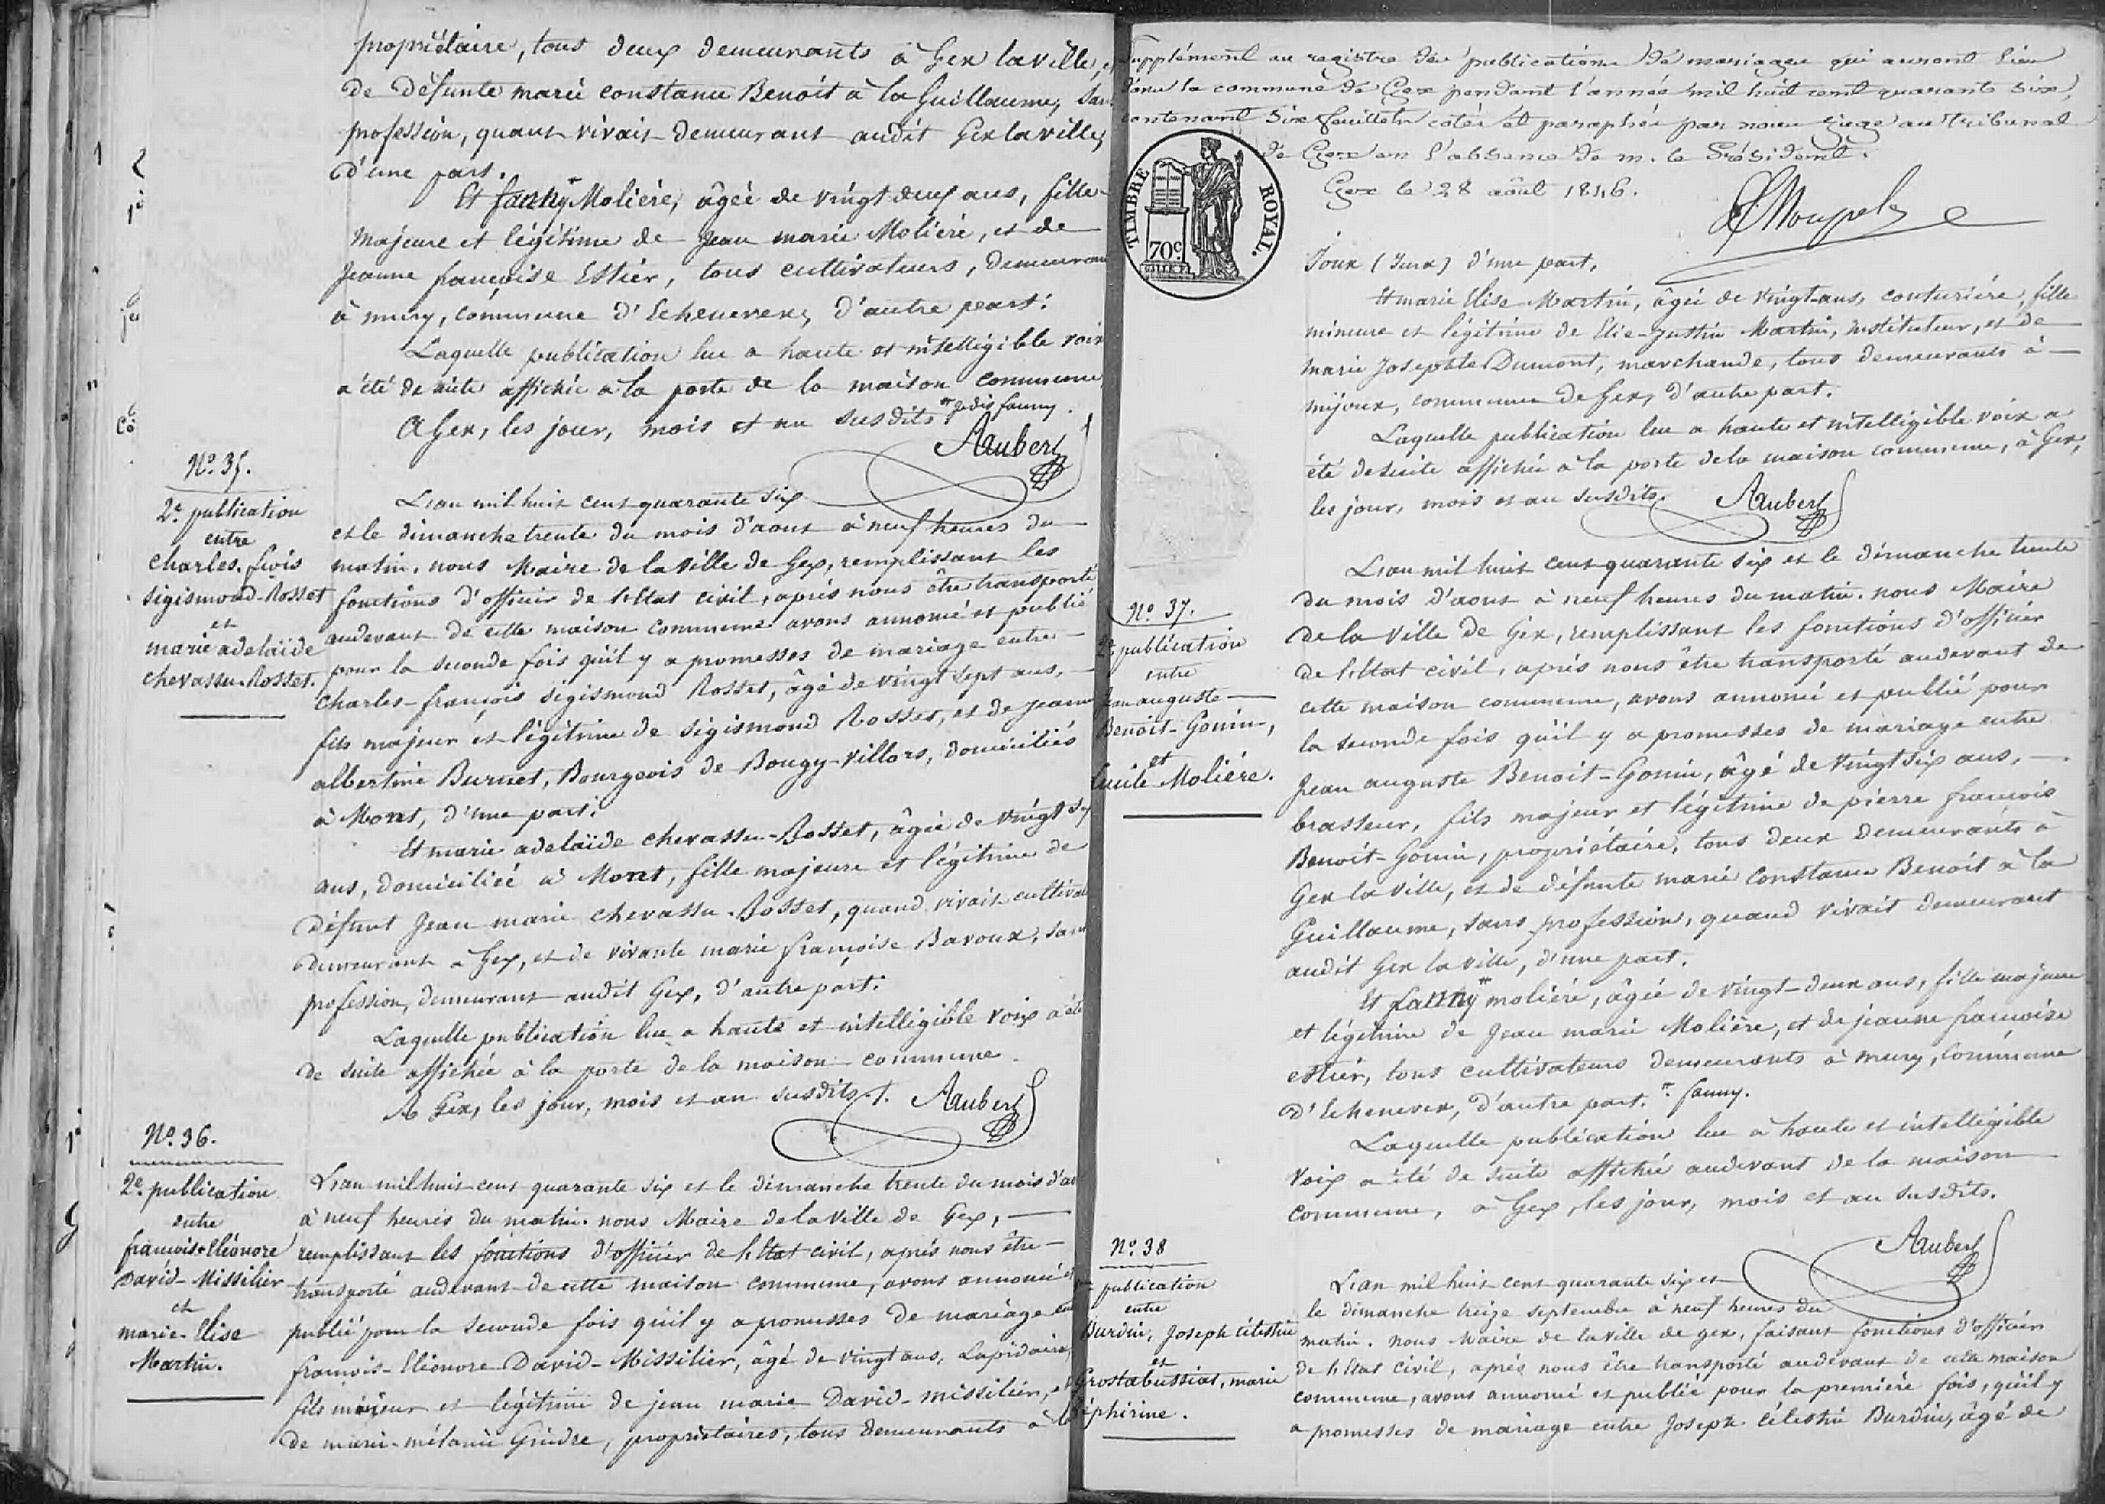 propriétaire, tous deux demeurants à Gex la ville, et
de défunte marie constance Benoit à la Guillaume, sans
profession, quant vivait demeurant audit Gex la ville,
d'une part.
Et fanny* Moliére, âgée de vingt deux ans, fille
majeure et légitime de Jean marie Moliére, et de
Jeanne françoise Estier, tous cultivateurs, demeurant
à mury, commune d'Echenevex, d'autre peart.
Laquelle publication lue a haute et intelligible voix
a été de suite affichée à la porte de la maison commune
A Gex, les jour, mois et an susdits. * je dis fanny.
Aaubert
No. 35.
2e. publication
entre
charles. fcois
sigismond-Rosset
et
marie adelaïde
chevassu-Rosset.
L'an mil huit cent quarante six
et le dimanche trente du mois d'aout à neuf heures du
matin, nous Maire de la ville de Gex, remplissant les
fonctions d'officier de l'Etat civil, après nous être transporté
audevant de cette maison commune avons annoncé et publié
pour la seconde fois qu'il y a promesses de mariage entre
charles-françois sigismond Rosset, âgé de vingt sept ans,
fils majeur et légitime de sigismond Rosset, et de jeanne
albertine Burnet, Bourgeois de Bougy-Villars, domiciliés
à Mont, d'une part.
Et marie adelaïde chevassu-Rosset, âgée de vingt six
ans, domiciliée à Mont, fille majeure et légitime de
défunt Jean marie chevassu-Rosset, quand vivait cultivateur
demeurant a Gex, et de vivante marie françoise Bavoux, sans
profession, demeurant audit Gex, d'autre part.
Laquelle publication lue a haute et intelligible voix a été
de suite affichée à la porte de la maison commune.
A Gex, les jour, mois et an susdits.
Aaubert
No. 36.
2e. publication
entre
françois-Eléonore
David-Missilier
et
marie-Elise
Martin.
L'an mil huit cent quarante six et le dimanche trente du mois d'aout
à neuf heures du matin. nous Maire de la Ville de Gex,
remplissant les fonctions d'officier de l'Etat civil, après nous être
transporté audevant de cette maison commune, avons annoncé et
publié pour la seconde fois qu'il y a promesses de mariage entre
françois-Eléonore David-Missilier, âgé de vingt ans, Lapidaire,
fils mineur et légitime de jean marie David-missilier, et
de marie-mélanie Grudre, propriétaires, tous demeurants à
Supplément au registre des publications de mariages qui auront lieu
dans la commune de Gex pendant l'année mil huit cent quarante six,
contenant six feuillets cotés et paraphés par nous juge au tribunal
de Gex en l'absence de m. le Président.
Gex le 28 août 1846.
TIMBRE ROYAL.
70c.
Joux (Jura) d'une part,
Et marie Elise Martin, âgée de vingt-ans, couturière, fille
mineure et légitime de Elie-Justin Martin, instituteur, et de
marie Josephte Dumont, marchande, tous demeurants à
mijoux, commune de Gex, d'autre part.
Laquelle publication lue a haute et intelligible voix a
été de suite affichée à la porte de la maison commune, à Gex,
les jour, mois et an susdits.
Aaubert
No. 37.
2e. publication
entre
Jean auguste
Benoit-Gonin,
et
Lucile Moliére.
L'an mil huit cent quarante six et le dimanche trente
du mois d'aout à neuf heures du matin. nous Maire
de la Ville de Gex, remplissant les fonctions d'officier
de l'Etat civil, après nous être transporté audevant de
cette maison commune, avons annoncé et publié pour
la seconde fois qu'il y a promesses de mariage entre
Jean auguste Benoit-Gonin, âgé de vingt six ans,
brasseur, fils majeur et légitime de pierre françois
Benoit-Gonin, propriétaire, tous deux demeurants à
Gex la ville, et de défunte marie Constance Benoit à la
Guillaume, sans profession, quand vivait demeurant
audit Gex la ville, d'une part.
Et fanny* moliére, âgée de vingt-deux ans, fille majeure
et légitime de Jean marie Moliére, et de jeanne françoise
estier, tous cultivateurs demeurants à mury, commune
d'Echenevex, d'autre part. * fanny.
Laquelle publication lue a haute et intelligible
voix a été de suite affichée audevant de la maison
commune, à Gex, les jour, mois et an susdits.
Aaubert
No. 38
publication
entre
Burdin, Joseph Célestin
et
Grostabussiat, marie
Séphirine.
L'an mil huit cent quarante six et
le dimanche treize septembre à neuf heures du
matin. nous Maire de la ville de gex, faisant fonctions d'officier
de l'Etat civil, après nous être transporté audevant de cette maison
commune, avons annoncé et publié pour la première fois, qu'il y
a promesses de mariage entre Joseph Célestin Burdin, âgé de